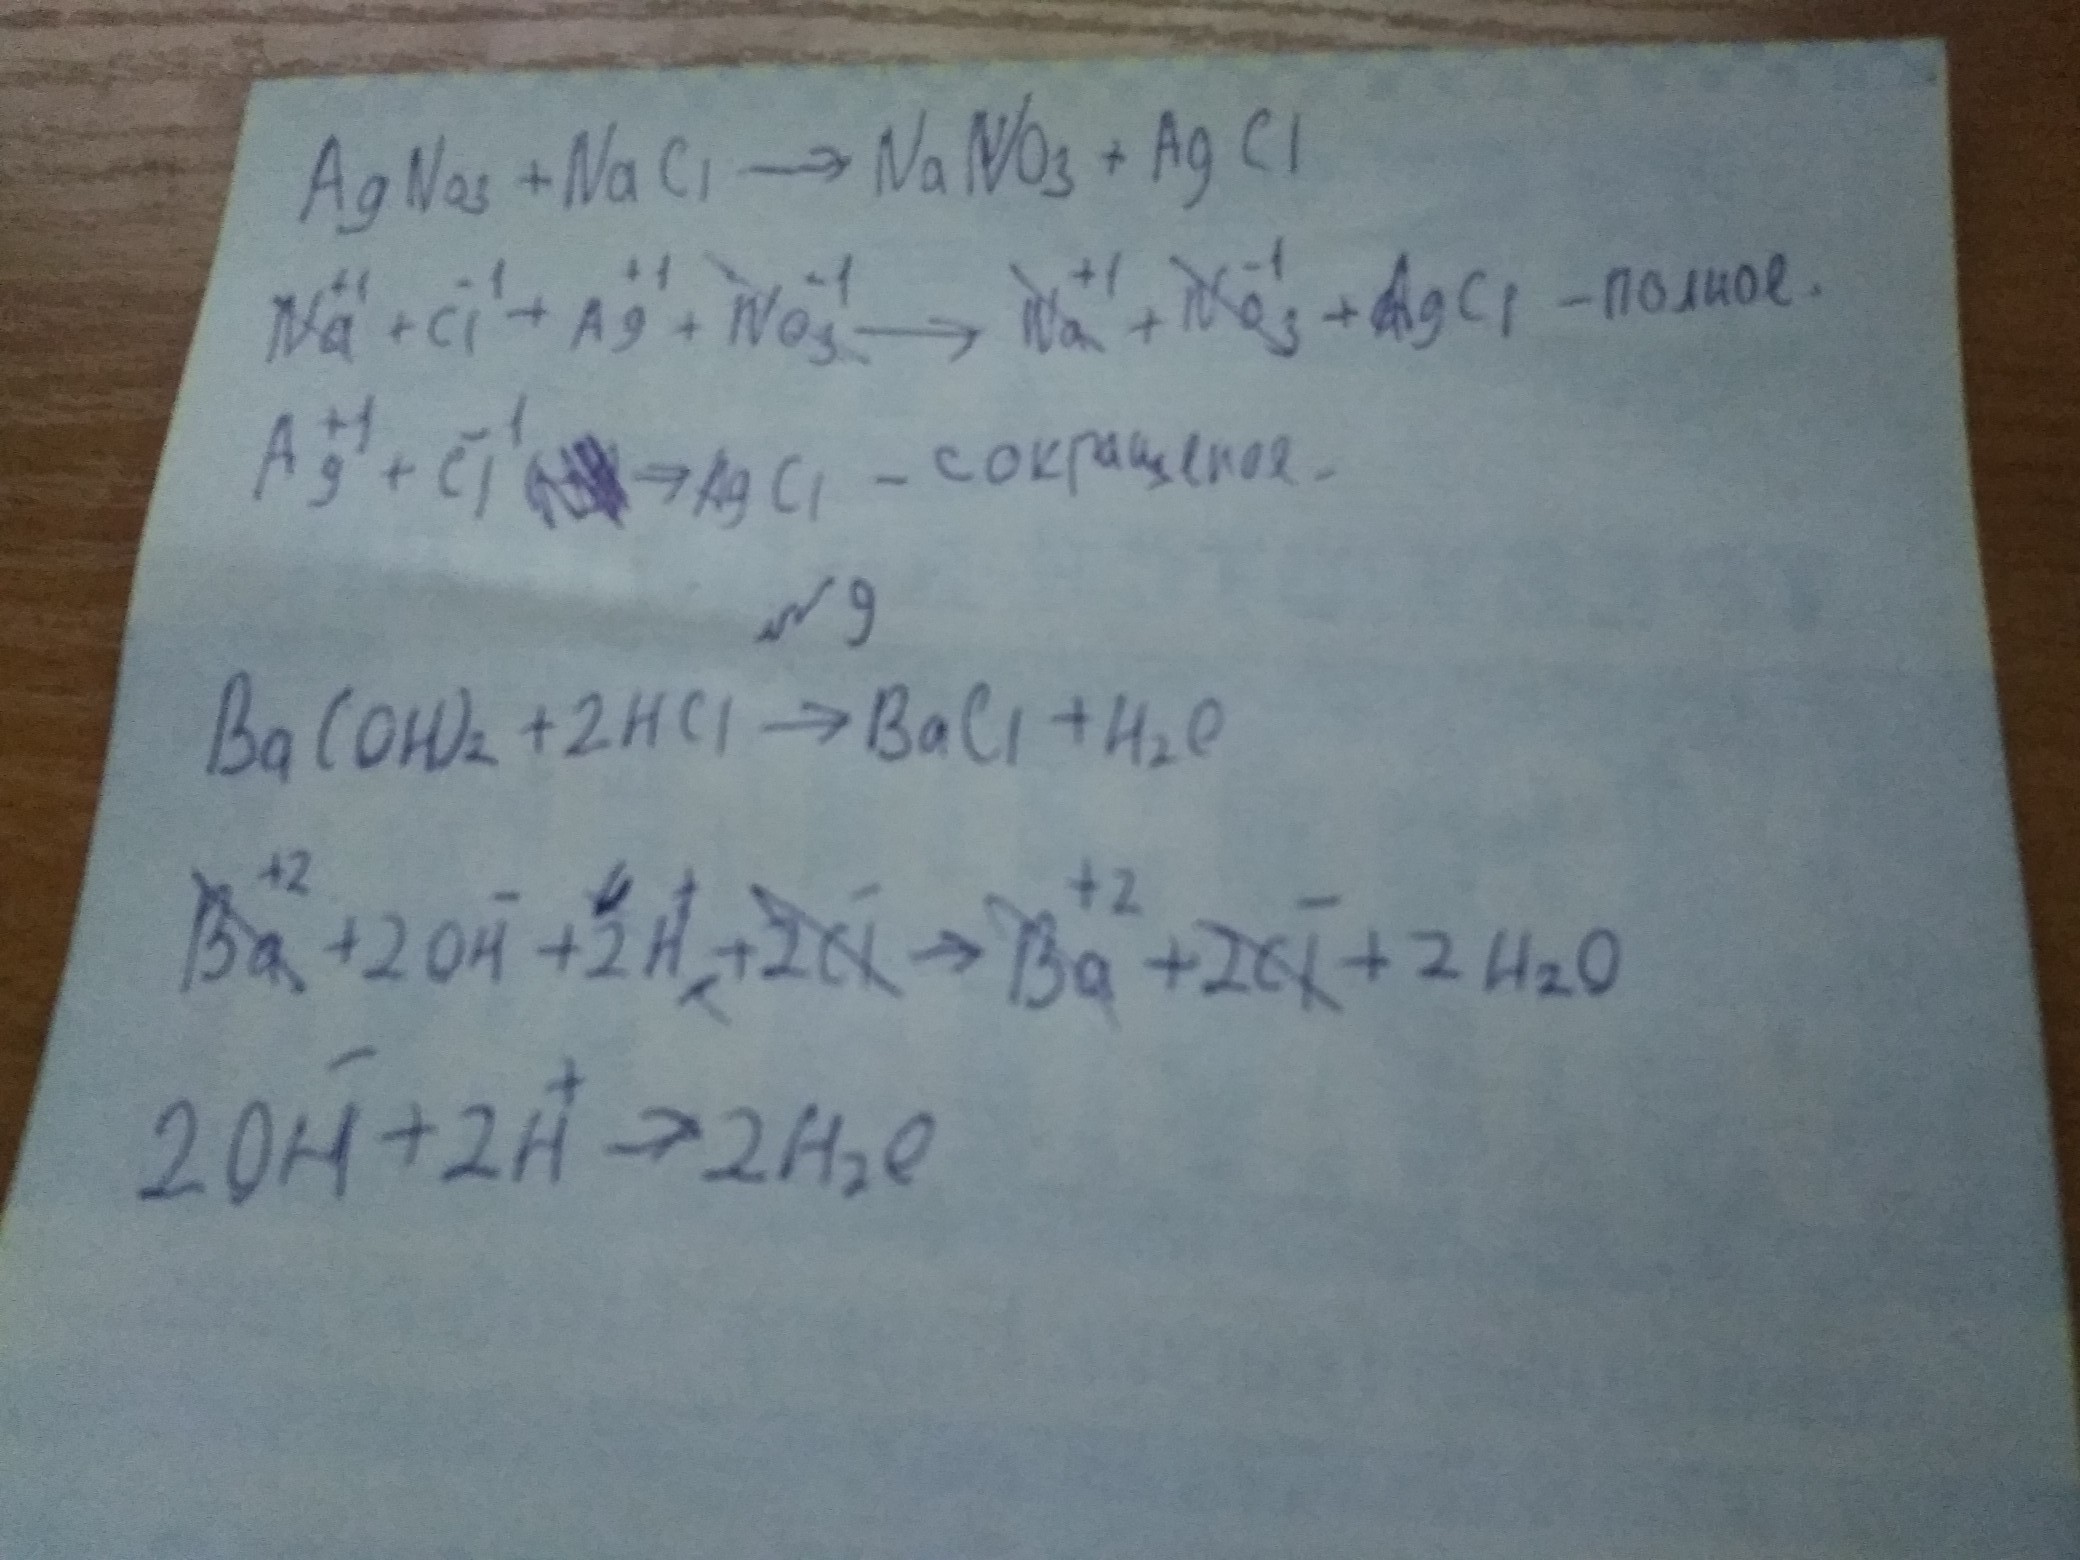 AgNO3 + NaCl → NaNO3 + AgCl
Na+1 + Cl-1 + Ag+1 + NO3-1 → Na+1 + NO3-1 + AgCl – полное.
Ag+1 + Cl-1 → AgCl – сокращеное.
№9
Ba(OH)2 + 2HCl → BaCl + H2O
Ba+2 + 2OH- + 2H+ + 2Cl- → Ba+2 + 2Cl- + 2H2O
2OH- + 2H+ → 2H2O